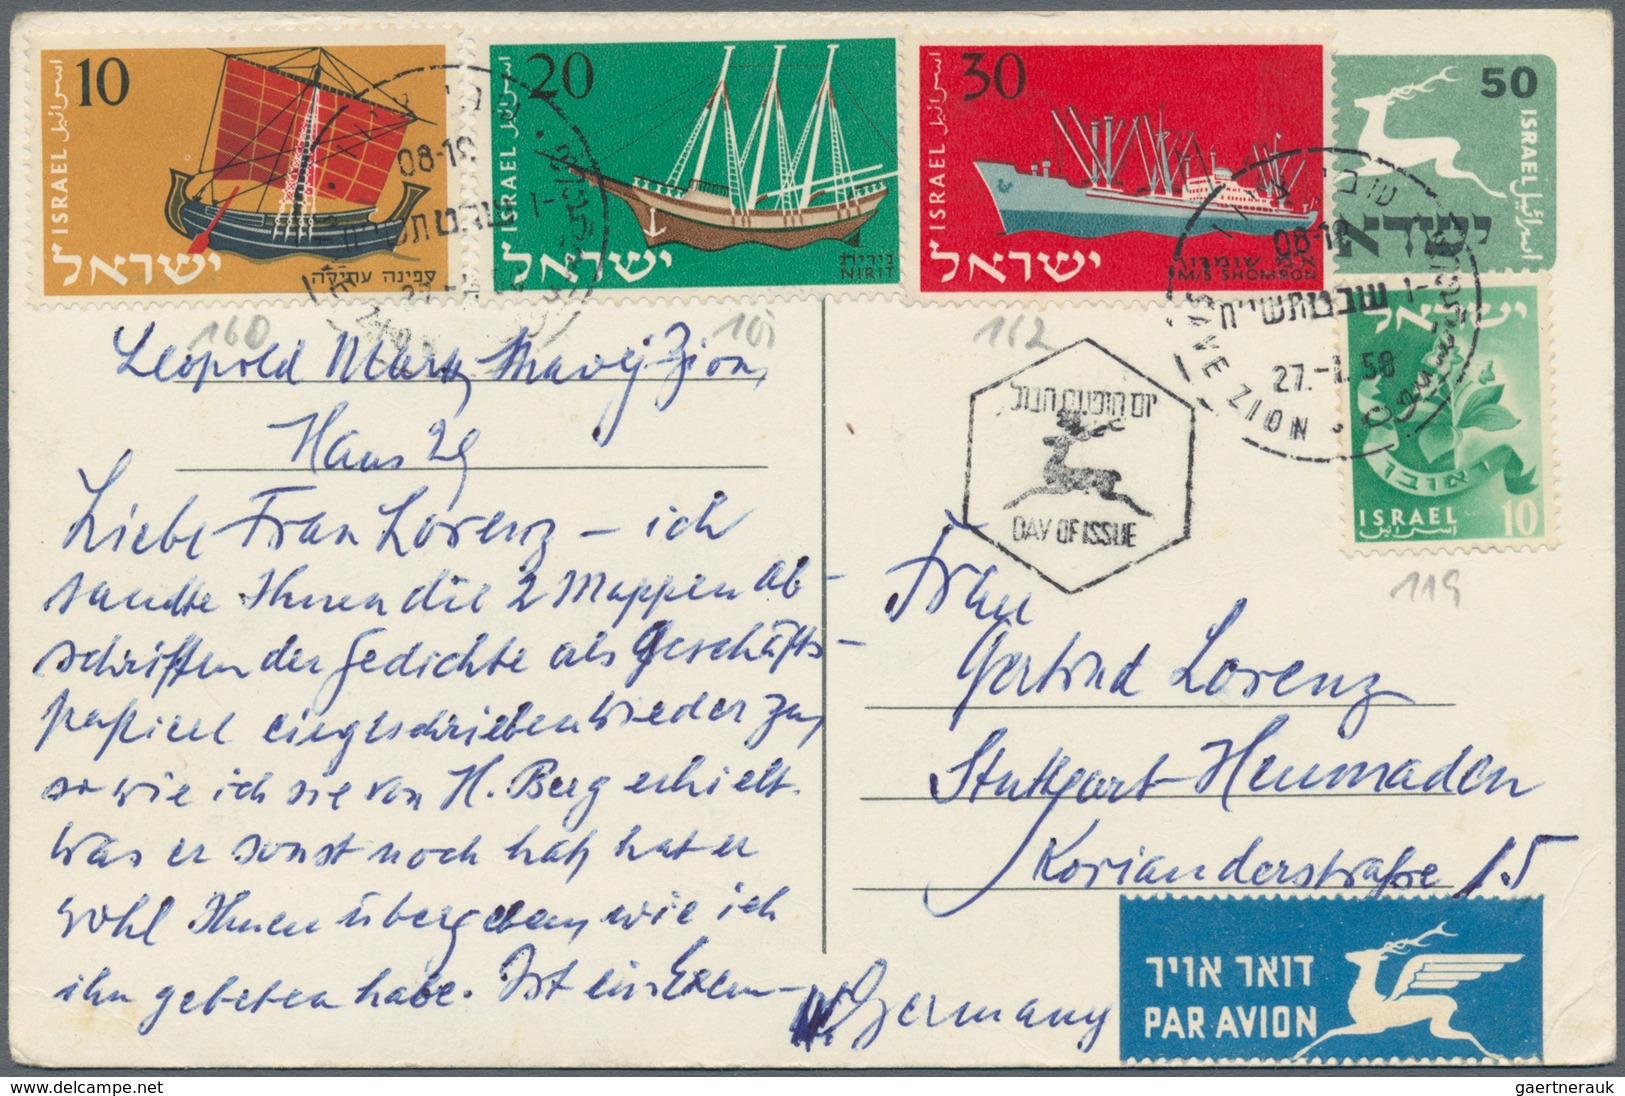 10 ISRAEL اسرائيل ישראל ספינה עתיקה
20 ISRAEL اسرائيل ישראל נירית NIRIT
30 ISRAEL اسرائيل ישראל א״מ שומרון M/S SHOMRON
50 ISRAEL اسرائيل ישראל
08-19
08-19
שובי ציון
ו- שבט תשי״ח
27.-1.58
SHAVE ZION
ישראל
ראובן
ISRAEL 10
اسرائيل
160
162
119
יום הופעת הבול
DAY OF ISSUE
Leopold Marx, Shavej-Zion,
Haus 29
Liebe Frau Lorenz – ich
sandte Ihnen die 2 Mappen Ab-
schriften der Gedichte als Geschäfts-
papiere eingeschrieben wieder zu,
so wie ich sie von H. Berg erhielt.
Was er sonst noch hat, hat er
wohl Ihnen übergeben, wie ich
ihn gebeten habe. Ist ein Exem-
Frau
Gertrud Lorenz
Stuttgart-Heumaden
Korianderstraße 15
W. Germany
דואר אויר
PAR AVION
delcampe.net
gaertnerauk